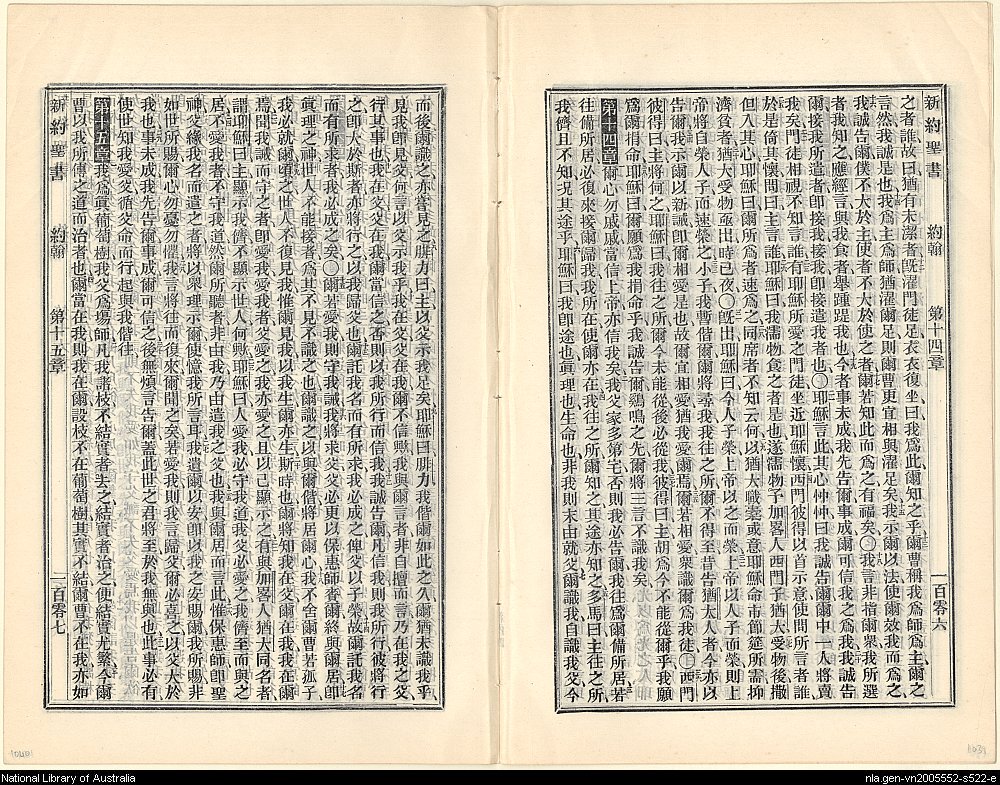 新約聖書 約翰 第十四章 一百零六
之者誰故曰猶有未潔者旣濯門徒足衣衣復坐曰我爲此爾知之乎爾曹稱我爲師爲主爾之
言然我誠是也我爲主爲師猶濯爾足則爾曹更宜相與濯足矣我示爾以法使爾效我而爲之
我誠告爾僕不大於主使者不大於使之者爾若知此而爲之有福矣○我言非指爾衆我所選
者我知之應經言與我食者舉踵踶我也今者事未成我先告爾事成爾可信我之爲我我誠告
爾接我所遣者卽接我接我卽接遣我者也○耶穌言此其心忡忡曰我誠告爾爾中一人將賣
我矣門徒相視不知言誰有耶穌所愛之門徒坐近耶穌懷西門彼得以首示意使問所言者誰
於是倚其懷間曰主言誰耶穌曰我濡物食之者是也遂濡物予加畧人西門子猶大受物後撒
但入其心耶穌曰爾所爲者速爲之同席者不知云何以猶大職橐或意耶穌命市節筵所需抑
濟貧者猶大受物亟出時已夜○旣出耶穌曰今人子榮上帝以之而榮上帝以人子而榮則上
帝將自榮人子而速榮之小子我暫偕爾爾將尋我我往之所爾不得至昔告猶太人者今亦以
告爾我示爾以新誡卽爾相愛是也故爾宜相愛猶我愛爾焉爾若相愛衆識爾爲我徒○西門
彼得曰主將何之耶穌曰我往之所爾今未能從後必從我彼得曰主胡爲今不能從爾乎我願
爲爾捐命耶穌曰爾願爲我捐命乎我誠告爾鷄鳴之先爾將三言不識我矣
第十四章爾心勿戚戚當信上帝亦信我矣我父家多第宅否則我必告爾我往爲爾備所居若
往備所居必復來接爾歸我使我所在使爾亦在我往之所爾知之其途亦知之多馬曰主往之所
我儕且不知況其途乎耶穌曰我卽途也眞理也生命也非我則未由就父爾識我自識我父今
而後爾識之亦嘗見之腓力曰主以父示我足矣耶穌曰腓力我偕爾如此之久爾猶未識我乎
見我卽見父何言以父示我乎我在父父在我爾不信與我與爾言者非自擅而言乃在我之父
行其事也我在父父在我爾當信之否則以我所行而信我我誠告爾凡信我則我所行彼將行
之卽大於斯者亦將行之以我歸父也爾託我名而有所求我必成之俾父以子榮故爾託我名
而有所求者我必成之矣○爾若愛我則守我誡我將求父父必更以保惠師者爾終與爾居卽
眞理之神世人不能接者爲其不見不識之也爾識之以與爾偕將居爾心我不舍爾曹若孤子
我必就爾頃之世人不復見我惟爾見我以我生爾亦生斯時也爾將知我在父爾在我我在爾
焉聞我誡而守之者卽愛我愛我者父愛之我亦愛之且以己顯示之有與加畧人猶大同名者
謂耶穌曰主顯示我儕不顯示世人何與耶穌曰人愛我必守我道我父必愛之我儕至而與之
居不愛我者不守我道然爾所聽者非由我乃由遣我之父也我與爾居而言此惟保惠師卽聖
神父緣我名而遣之者將以衆理示爾使憶我所言耳我遺爾以安卽以我之安賜爾我所賜非
如世所賜爾心勿憂勿懼我言將往而復來爾聞之矣若愛我則我言歸父爾必喜之以父大於
我也事未成我先告爾事成爾可信之後無煩言告爾蓋此世之君將至於我無與也此事必有
使世知我愛父循父命而行起與我偕往
第十五章我爲眞葡萄樹我父爲場師凡我諸枝不結實者去之結實者治之使結實尤繁今爾
曹以我所傳之道而治者也爾當在我則我在爾設枝不在葡萄樹其實不結爾曹不在我亦如
新約聖書 約翰 第十五章 一百零七
National Library of Australia
nla.gen-vn2005552-s522-e